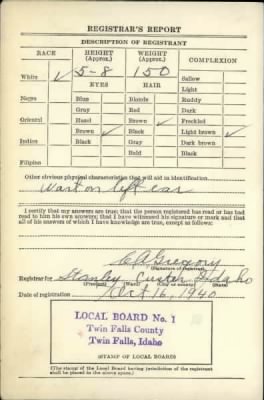 REGISTRAR'S REPORT
DESCRIPTION OF REGISTRANT
RACE HEIGHT (Approx.) WEIGHT (Approx.) COMPLEXION
White ✓ 5-8 150 Sallow
EYES HAIR Light
Negro Blue Blonde Ruddy
Gray Red Dark
Oriental Hazel Brown ✓ Freckled
Brown ✓ Black Light brown ✓
Indian Black Gray Dark brown
Bald Black
Filipino
Other obvious physical characteristics that will aid in identification
Wart on left ear
I certify that my answers are true; that the person registered has read or has had read to him his own answers; that I have witnessed his signature or mark and that all of his answers of which I have knowledge are true, except as follows:
C A Gregory
(Signature of registrar)
Registrar for Stanley Custer Idaho
(Precinct) (Ward) (City or county) (State)
Date of registration Oct 16, 1940
LOCAL BOARD No. 1
Twin Falls County
Twin Falls, Idaho
(STAMP OF LOCAL BOARD)
(The stamp of the Local Board having jurisdiction of the registrant shall be placed in the above space.)